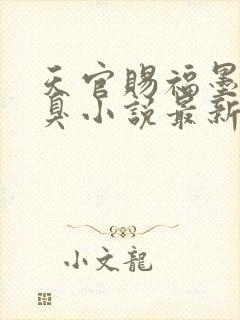 天官賜福墨
臭小説最新
小文龍